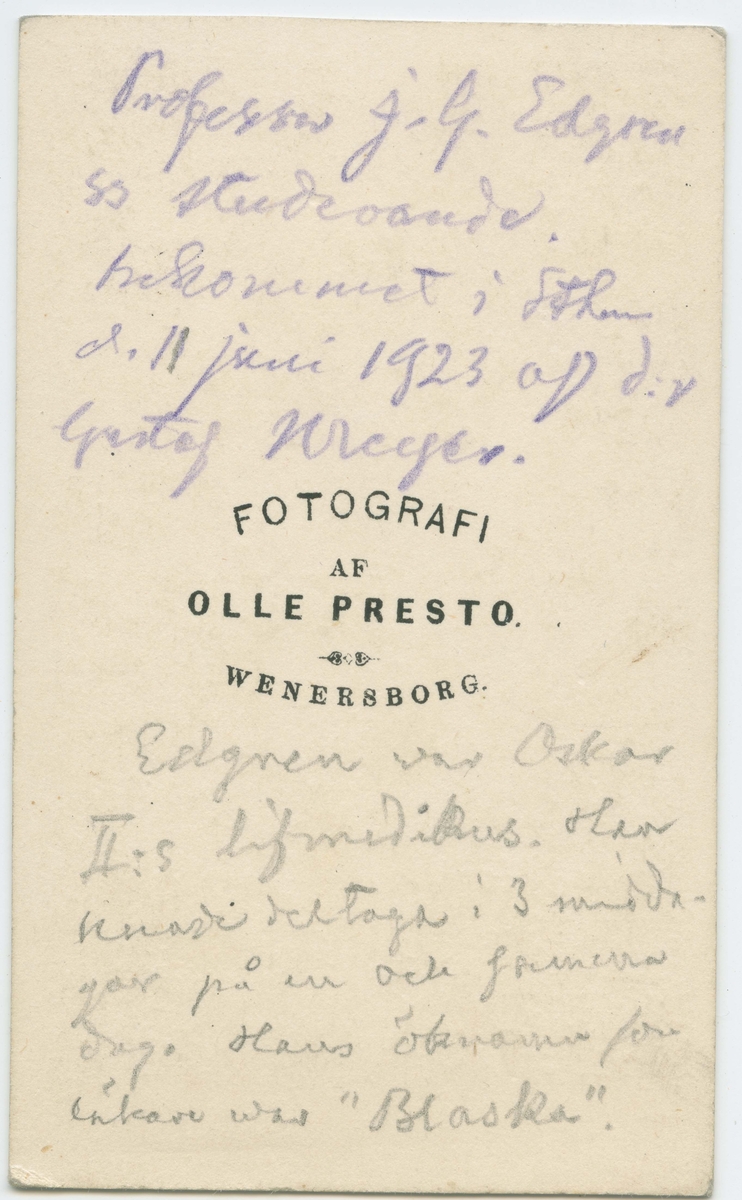 Professor J. G. Edgren
ss studerande.
bekommet i Sthm
d. 11 juni 1923 af d:r
Gustaf
FOTOGRAFI
AF
OLLE PRESTO.
WENERSBORG.
Edgren war Oskar
II:s lifmedikus. Han
kunde deltaga i 3 midda-
gar på en och samma
dag. Hans öknamn som
läkare war "Blaska".